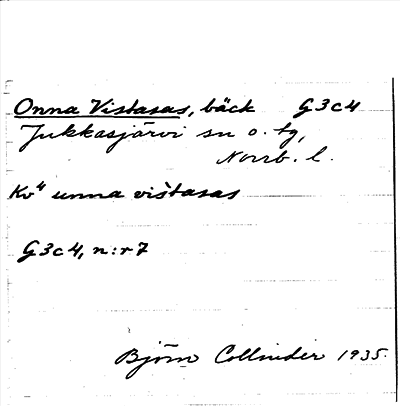 Onna Vistasas, bäck G3c4
Jukkasjärvi sn o. tg,
Norrb. l.
Kv" unna vištasas
G3c4, n:r 7
Björn Collinder 1935.